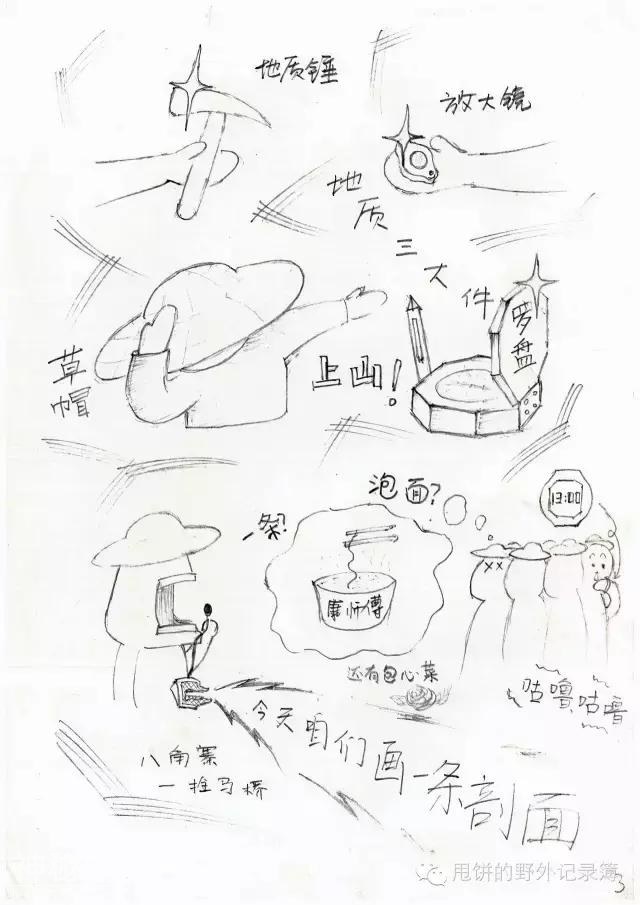 地质锤
放大镜
地质三大件
罗盘
草帽
上山!
泡面?
13:00
一条?
康师傅
还有包心菜
咕噜咕噜
今天咱们画一条剖面
八角寨
一拴马桥
甩饼的野外记录簿
3